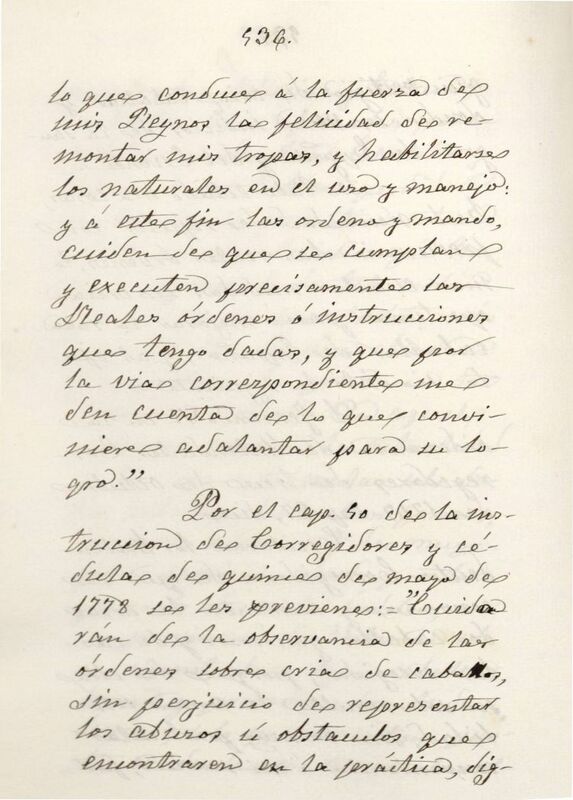 536.
lo que conduce á la fuerza de
mis Reynos la felicidad de re-
montar mis tropas, y habilitarse
los naturales en el uso y manejo:
y á este fin las ordeno y mando,
cuiden de que se cumplan
y executen precisamente las
Reales órdenes ó instrucciones
que tengo dadas, y que por
la via correspondiente me
den cuenta de lo que convi-
niere adalantar para su lo-
gro."
Por el cap. 50 de la ins-
truccion de Corregidores y cé-
dula de quince de mayo de
1778 se les previene: = "Cuida
rán de la observancia de las
órdenes sobre cria de caballos,
sin perjuicio de representar
los abusos ú obstaculos que
encontraren en la práctica, dig-